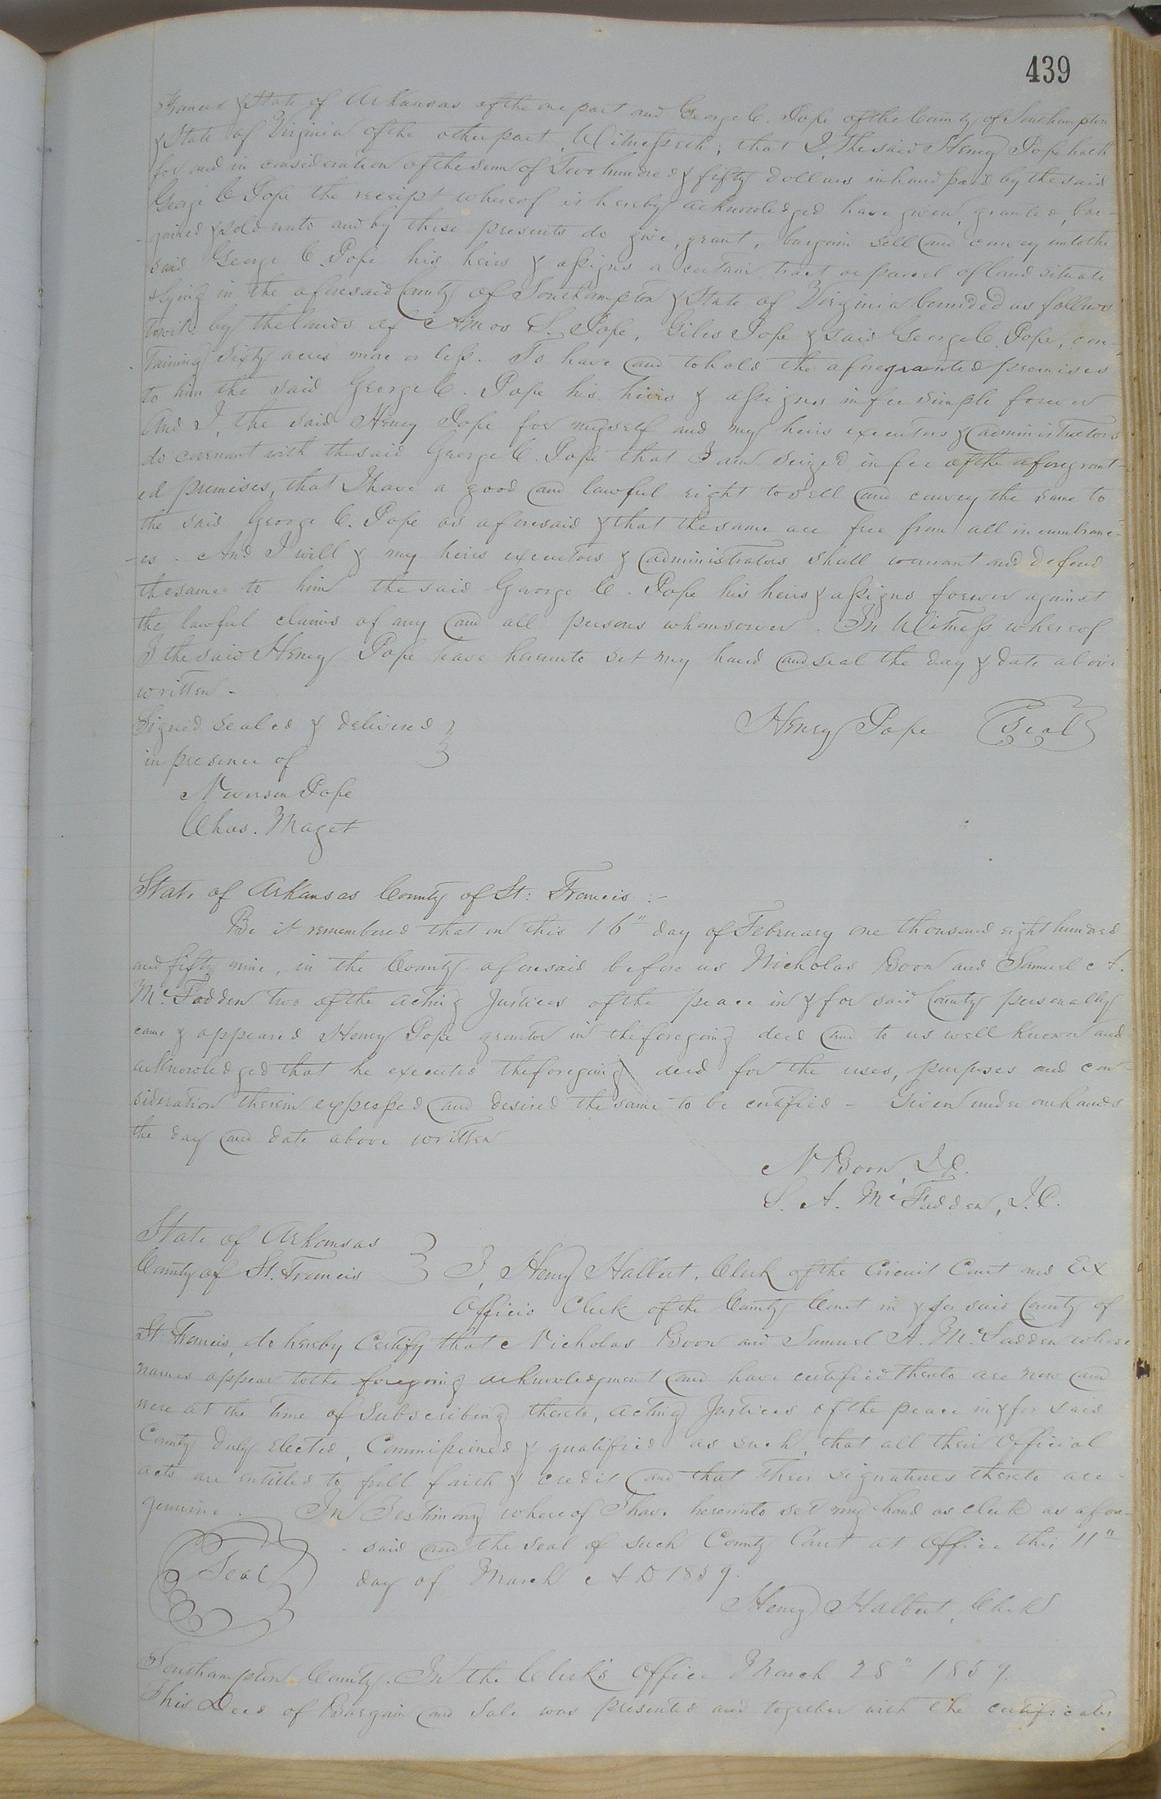 439
Francis & State of Arkansas of the one part and George C. Pope of the County of Southampton
& State of Virginia of the other part, Witnesseth, that I, the said Henry Pope hath
for and in consideration of the sum of Two hundred & fifty dollars in hand paid by the said
George C Pope the receipt whereof is hereby acknowledged have given, granted, bar-
-gained & sold unto and by these presents do give, grant, bargain sell and convey unto the
said George C. Pope his heirs & assigns a certain tract or parcel of land situate
& lying in the aforesaid County of Southampton & State of Virginia bounded as follows
towit by the lands of Amos S. Pope, Giles Pope & said George C. Pope, con-
taining Sixty acres more or less. To have and to hold the aforegranted premises
to him the said George C. Pope his heirs & assigns in fee simple forever
And I, the said Henry Pope for myself and my heirs executors & administrators
do covenant with the said George C. Pope that I am seized in fee of the aforegrant-
ed premises, that I have a good and lawful right to sell and convey the same to
the said George C. Pope as aforesaid & that the same are free from all incumbranc-
-es. And I will & my heirs executors & administrators shall warrant and defend
the same to him the said George C. Pope his heirs & assigns forever against
the lawful claims of any and all persons whomsoever. In Witness whereof
I the said Henry Pope have hereunto set my hand and seal the day & date above
written -
Signed sealed & delivered } Henry Pope (Seal)
in presence of
Newsom Pope
Chas. Maget
State of Arkansas County of St. Francis :-
Be it remembered that on this 16" day of February one thousand eight hundred
and fifty nine, in the County aforesaid before us Nicholas Boon and Samuel A.
McFadden two of the acting Justices of the peace in & for said County personally
came & appeared Henry Pope grantor in the foregoing deed and to us well known and
acknowledged that he executed the foregoing deed for the uses, purposes and con-
sideration therein expressed and desired the same to be certified - Given under our hands
the day and date above written
N Boon J.P.
S. A. McFadden, J.P.
State of Arkansas
County of St. Francis } I, Henry Halbert, Clerk of the Circuit Court and Ex
Officio Clerk of the County Court in & for said County of
St Francis, do hereby Certify that Nicholas Boon and Samuel A. McFadden whose
names appear to the foregoing acknowledgment and have certified thereto are now and
were at the time of subscribing thereto, acting Justices of the peace in & for said
County duly elected, Commissioned & qualified as such, that all their Official
acts are entitled to full faith & credit and that their signatures thereto are
genuine. In Testimony whereof I have hereunto set my hand as clerk as afore-
- said and the seal of such County Court at Office this 11"
Seal day of March A D 1859.
Henry Halbert, Clerk
Southampton County. In the Clerk's Office March 28" 1859.
This Deed of Bargain and Sale was presented and together with the certificates